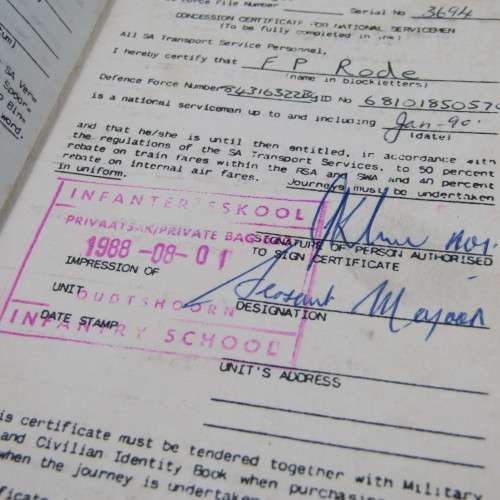 Force File Number Serial No 3694
CONCESSION CERTIFICATE FOR NATIONAL SERVICEMEN
(To be fully completed in ink)
All SA Transport Service Personnel,
I hereby certify that F P Rode
(name in blockletters)
Defence Force Number 84316322BG ID No 681018505
is a national serviceman up to and including Jan-90.
(date)
and that he/she is until then entitled, in accordance with
the regulations of the SA Transport Services, to 50 percent
rebate on train fares within the RSA and SWA and 40 percent
rebate on internal air fares. Journeys must be undertaken
in uniform.
INFANTERISKOOL
PRIVAATSAK/PRIVATE BAG
1988-08-01
SIGNATURE OF PERSON AUTHORISED
TO SIGN CERTIFICATE
IMPRESSION OF
UNIT
OUDTSHOORN
DATE STAMP
INFANTRY SCHOOL
Sersant Majoor
DESIGNATION
UNIT'S ADDRESS
is certificate must be tendered together with Military
and Civilian Identity Book when purchasing
when the journey is undertaken